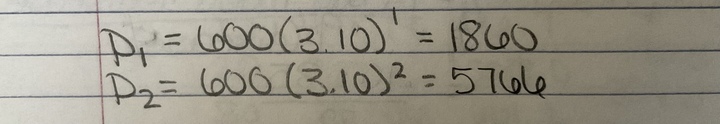 P₁ = 600(3.10)¹ = 1860
P₂ = 600(3.10)² = 5766